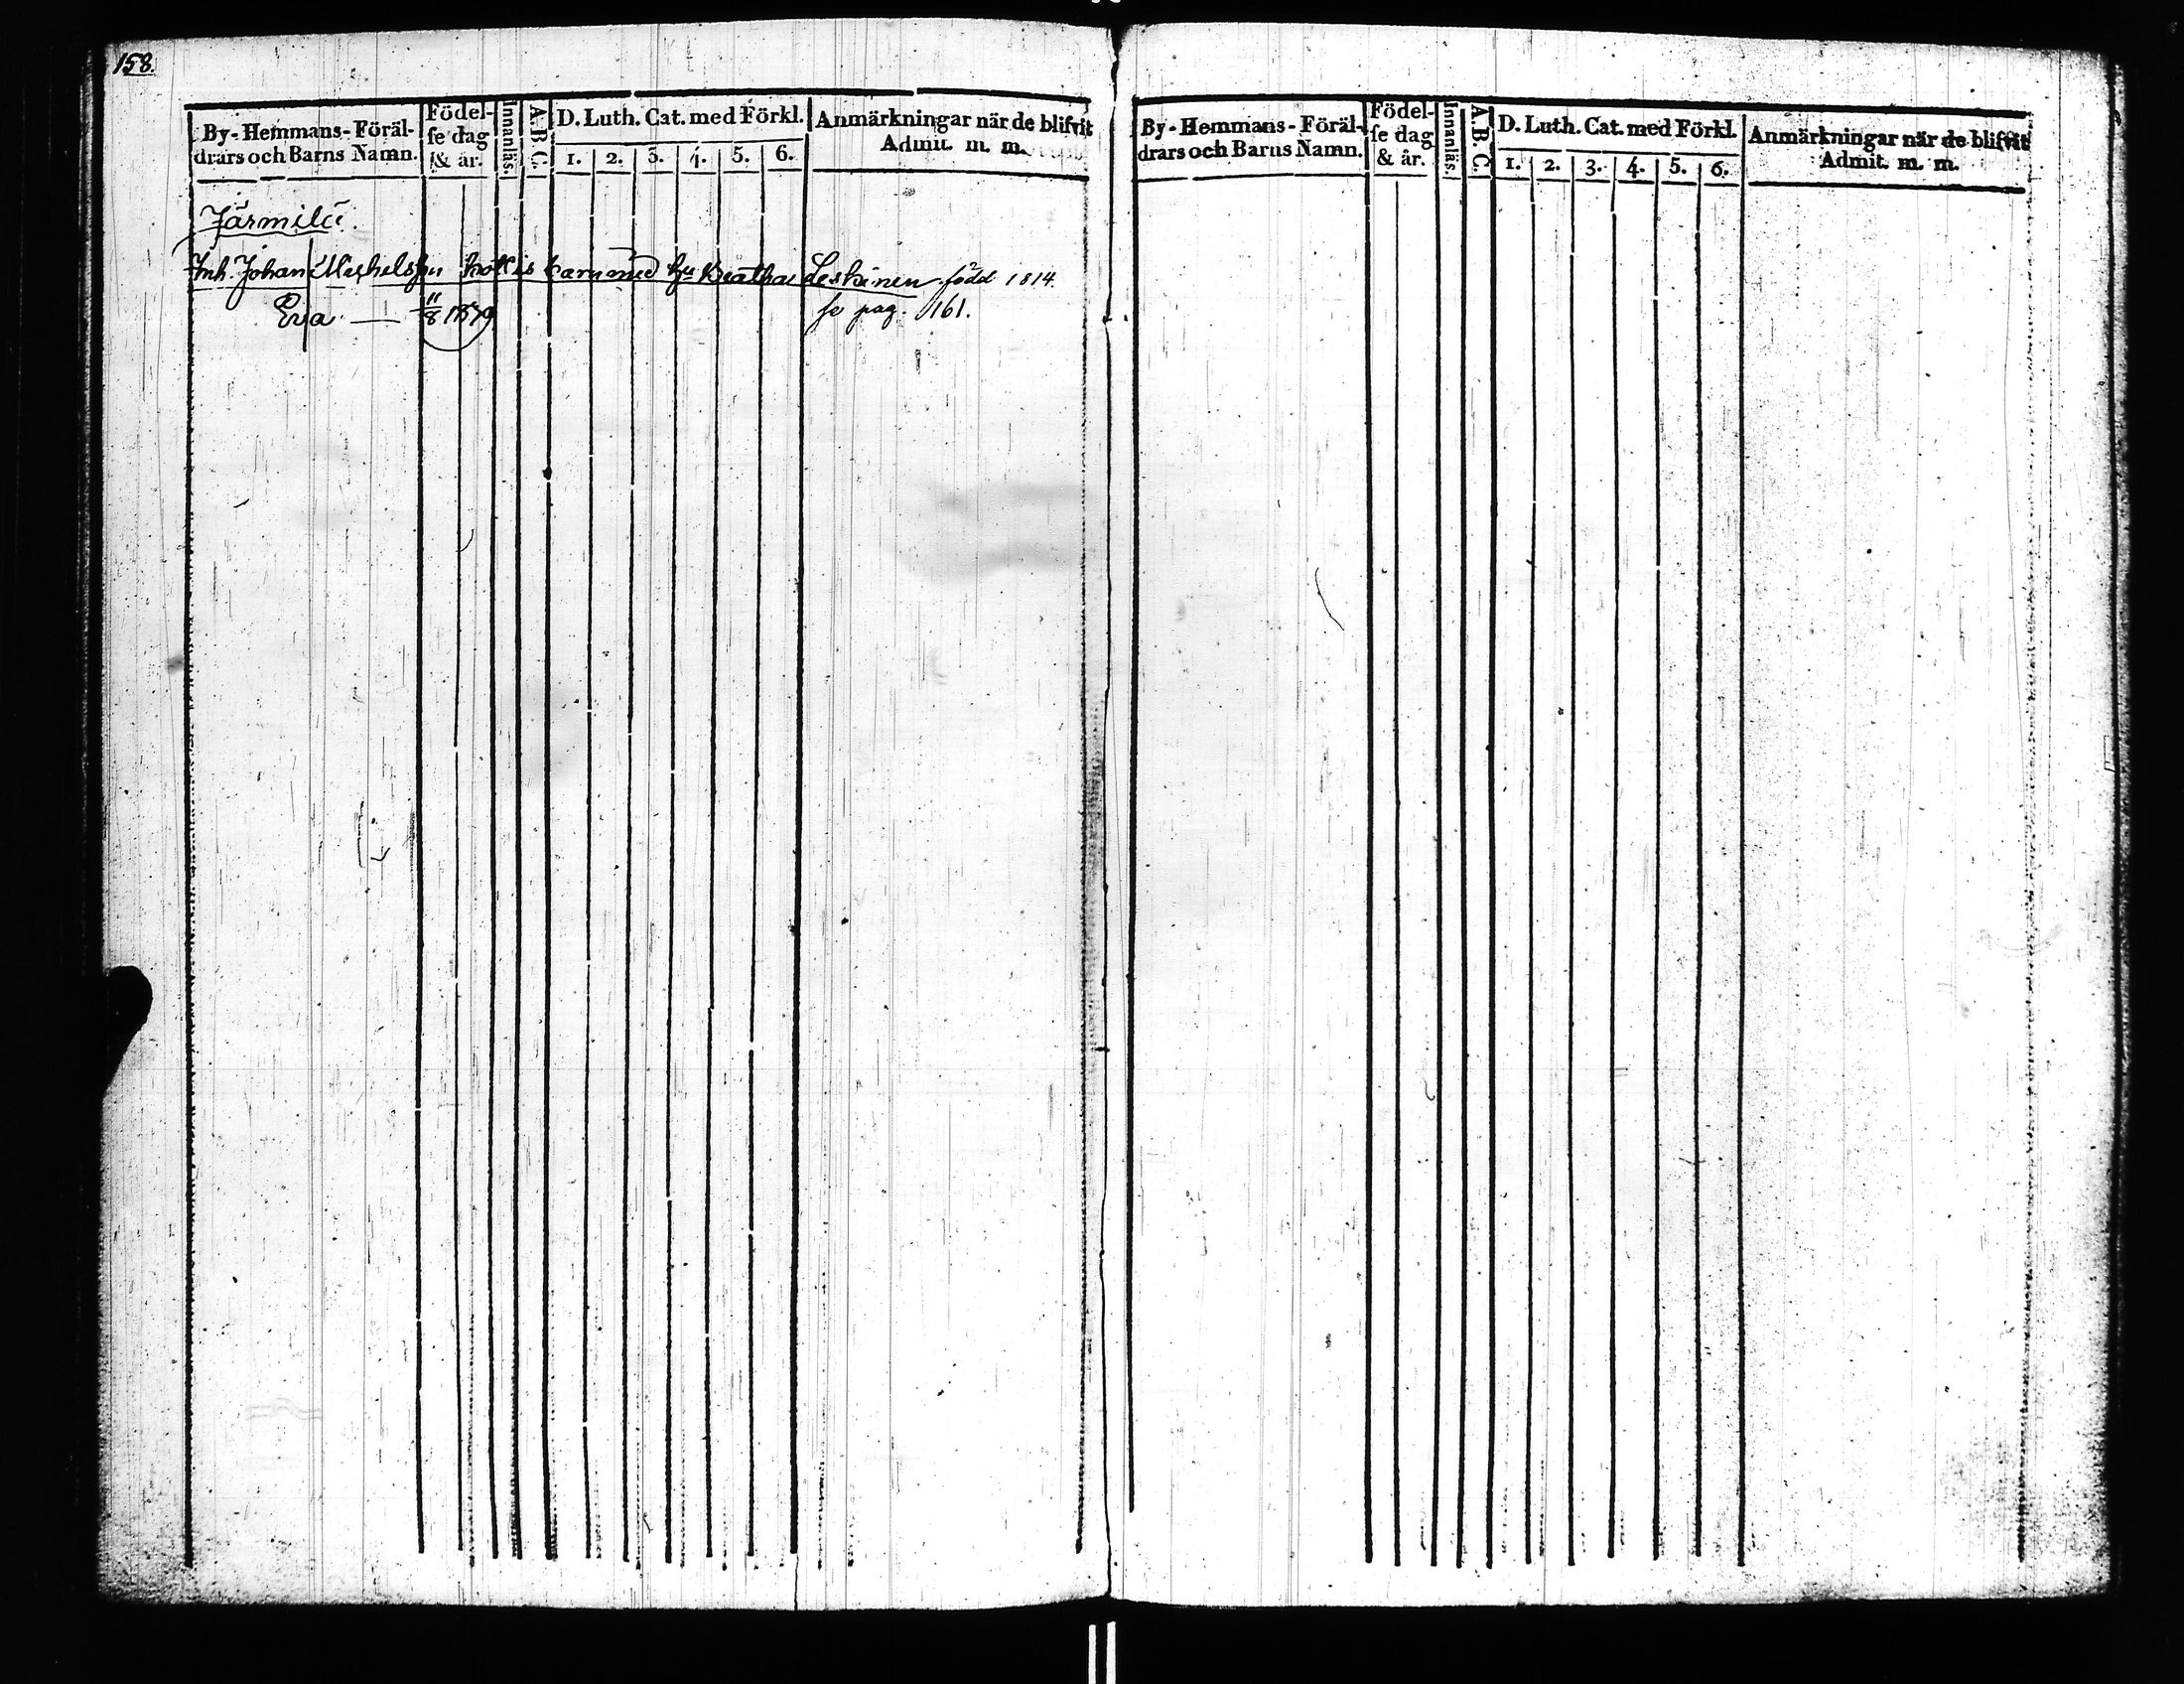 158.
By-Hemmans-Föräl-
drars och Barns Namn.
Födel-
se dag
& år.
Innanläs.
A.B.C.
D. Luth. Cat. med Förkl.
1. 2. 3. 4. 5. 6.
Anmärkningar när de blifvit
Admit. m. m.
Järmilä.
Inh. Johan barn med hu Beatha Leskinen född 1814.
Eva — 11/8
se pag. 161.
By-Hemmans-Föräl-
drars och Barns Namn.
Födel-
se dag
& år.
Innanläs.
A.B.C.
D. Luth. Cat. med Förkl.
1. 2. 3. 4. 5. 6.
Anmärkningar när de blifvit
Admit. m. m.